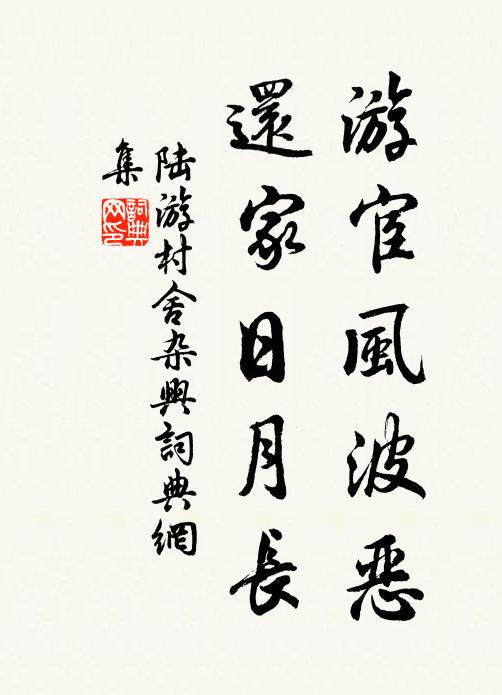 游宦風波惡
還家日月長
陆游村舍杂興詞典網
集
詞典
网印